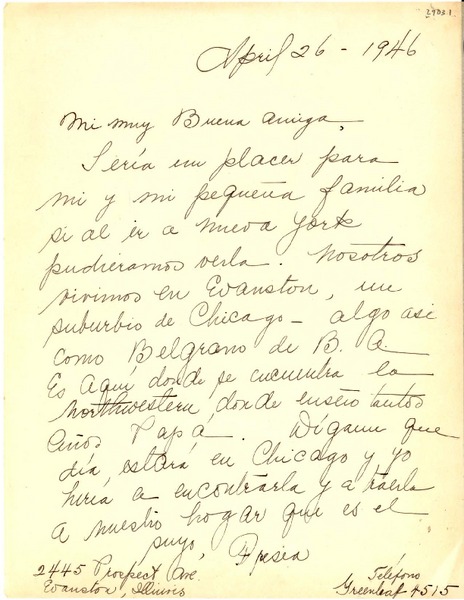 2903.1
April 26 - 1946
Mi muy Buena amiga,
Sería un placer para
mi y mi pequeña familia
si al ir a nueva york
pudieramos verla. Nosotros
vivimos en Evanston, un
suburbio de Chicago - algo asi
como Belgrano de B. A.
Es aquí donde se encuentra la
northwestern, donde enseño tantos
años Papá. Dígame que
día estará en Chicago y yo
hiría a encontrarla y a traerla
a nuestro hogar que es el
suyo,
2445 Prospect Ave.
Evanston, Illinois
Teléfono
Greenleaf 4515